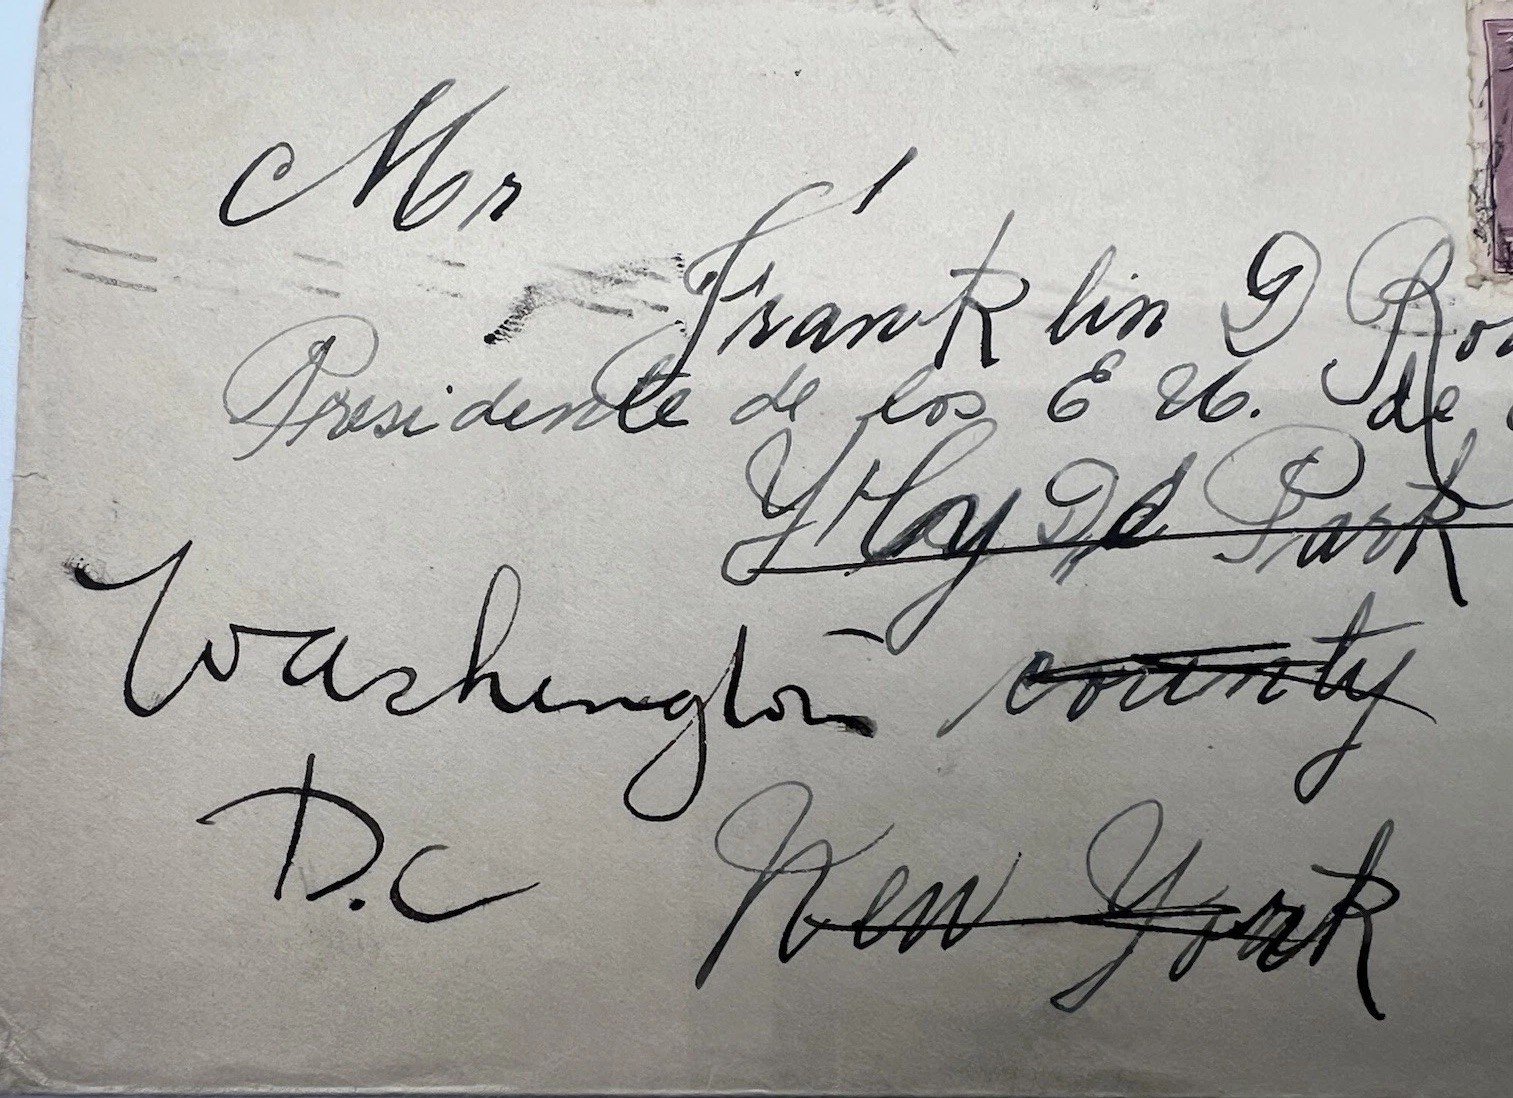 Mr
Franklin D Ro
Presidente de los E U. de
Hay Dd Park
Washington county
D.C New York